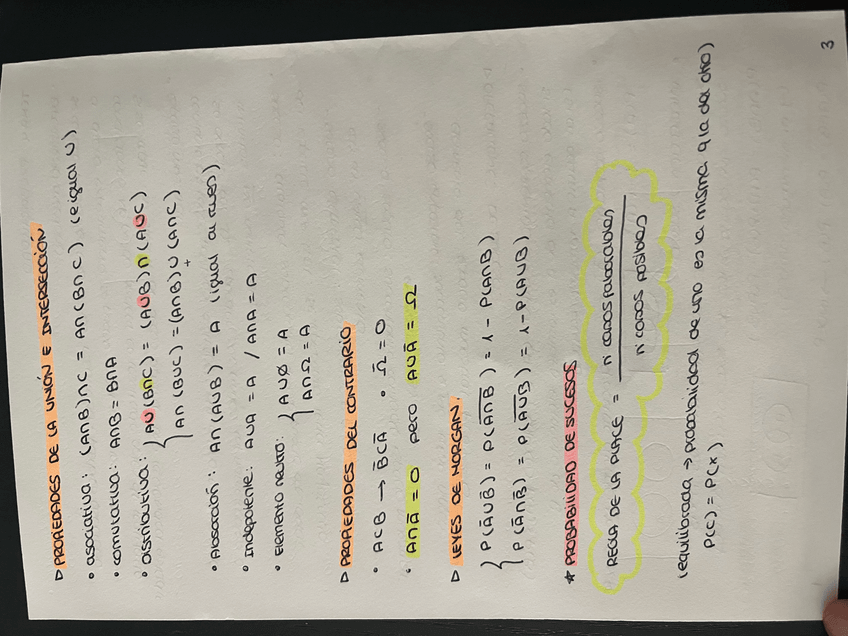 ▷ PROPIEDADES DE LA UNIÓN E INTERSECCIÓN
• asociativa: (A∩B)∩C = A∩(B∩C) (e igual U)
• comutativa: A∩B = B∩A
• Distributiva: { AU(B∩C) = (AUB)∩(AUC)
A∩(BUC) = (A∩B)U(A∩C)
+
• Absorción: A∩(AUB) = A (igual al rues)
• Indepotente: AUA = A / A∩A = A
• Elemento neutro: { AUØ = A
A∩Ω = A
▷ PROPIEDADES DEL CONTRARIO
• ACB → B̄CĀ • Ω̄ = O
• A∩Ā = O pero AUĀ = Ω
▷ LEYES DE MORGAN.
{ P(ĀUB̄) = P(A∩B)‾ = 1 - P(A∩B)
P(Ā∩B̄) = P(AUB)‾ = 1 - P(AUB)
★ PROBABILIDAD DE SUCESOS
REGLA DE LA PLACE = n casos faborables
n casos posibles
(equilibrada → probabilidad de uno es la misma q la del otro)
P(C) = P(X)
3